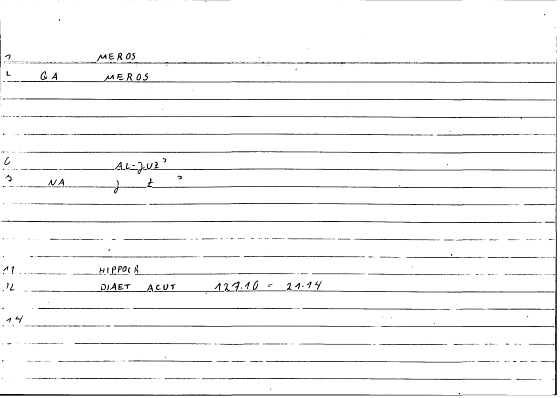 1 MEROS
2 GA MEROS
6 AL-JUZʾ
NA J Z ʾ
11 HIPPOCR
12 DIAET ACUT 127.10 = 21.14
14